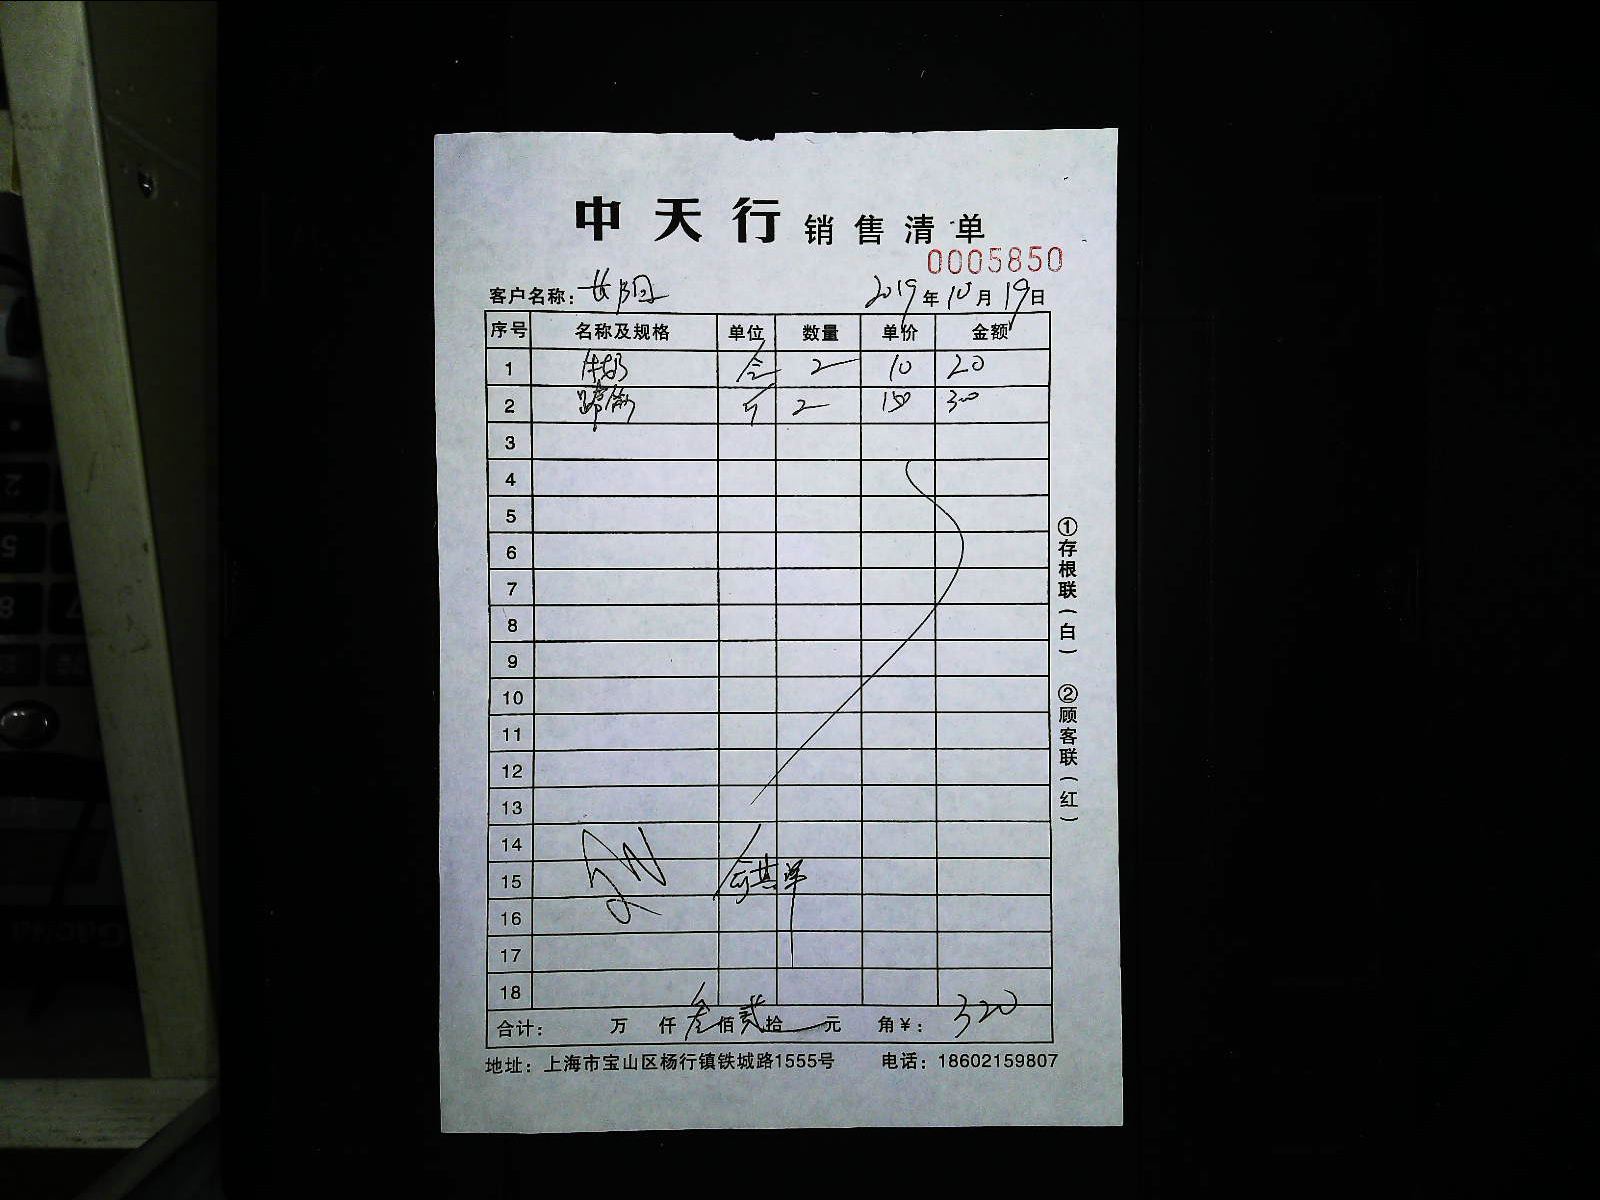 中天行 销售清单
0005850
客户名称：长阳 2019年10月19日
序号 名称及规格 单位 数量 单价 金额
1 牛奶 盒 2 10 20
2 蹄筋 斤 2 150 300
3
4
5
6
7
8
9
10
11
12
13
14
15
16
17
18
合计： 万 仟 叁佰贰拾 元 角￥：320
地址：上海市宝山区杨行镇铁城路1555号 电话：18602159807
①存根联（白） ②顾客联（红）